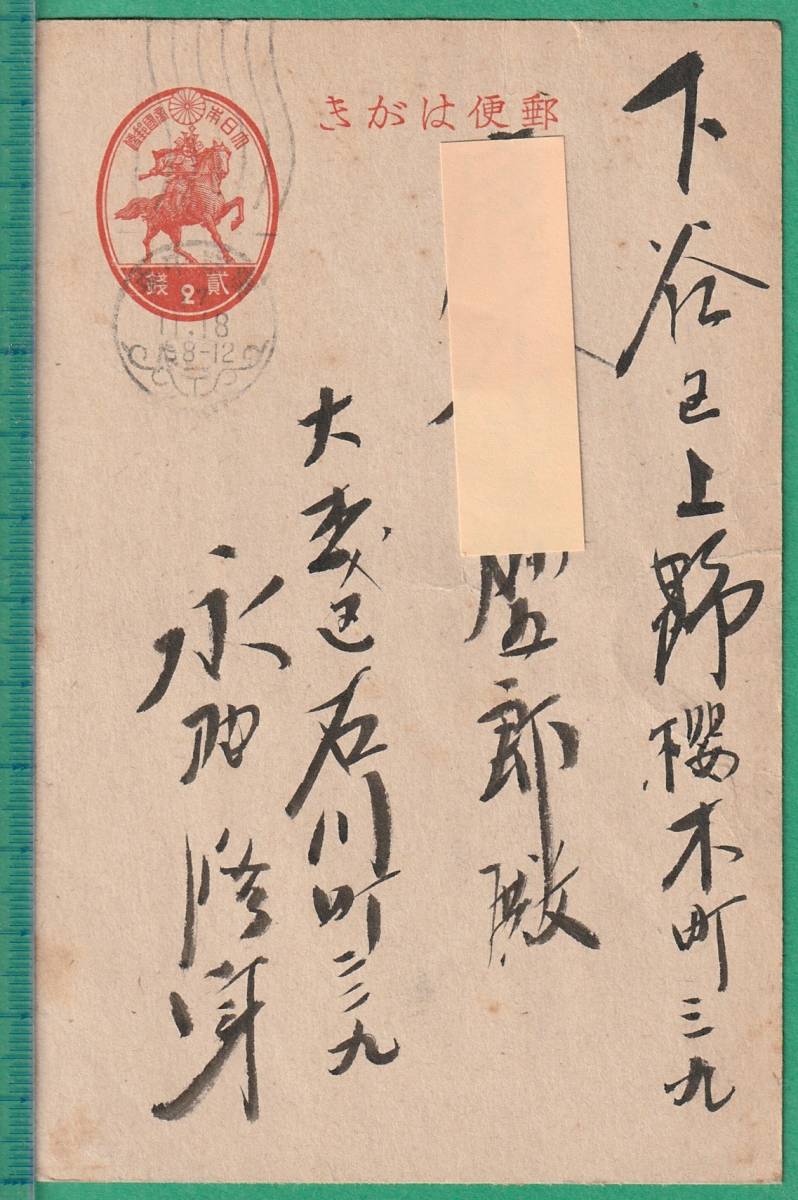 郵便はがき
大日本帝國郵便
貳 2 錢
11.18
8-12
下谷区上野櫻木町三九
郎殿
大森区石川町二三九
永助